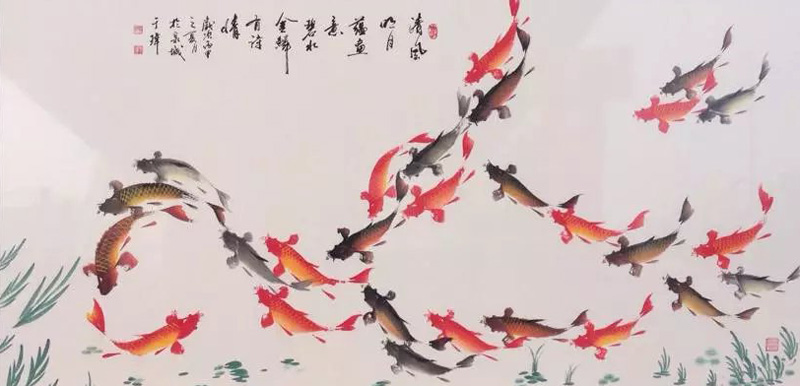 清風
明月
蘊畫
意
碧水
金鱗
有詩
情
歲次丙申
之夏月
於泉城
于瑋